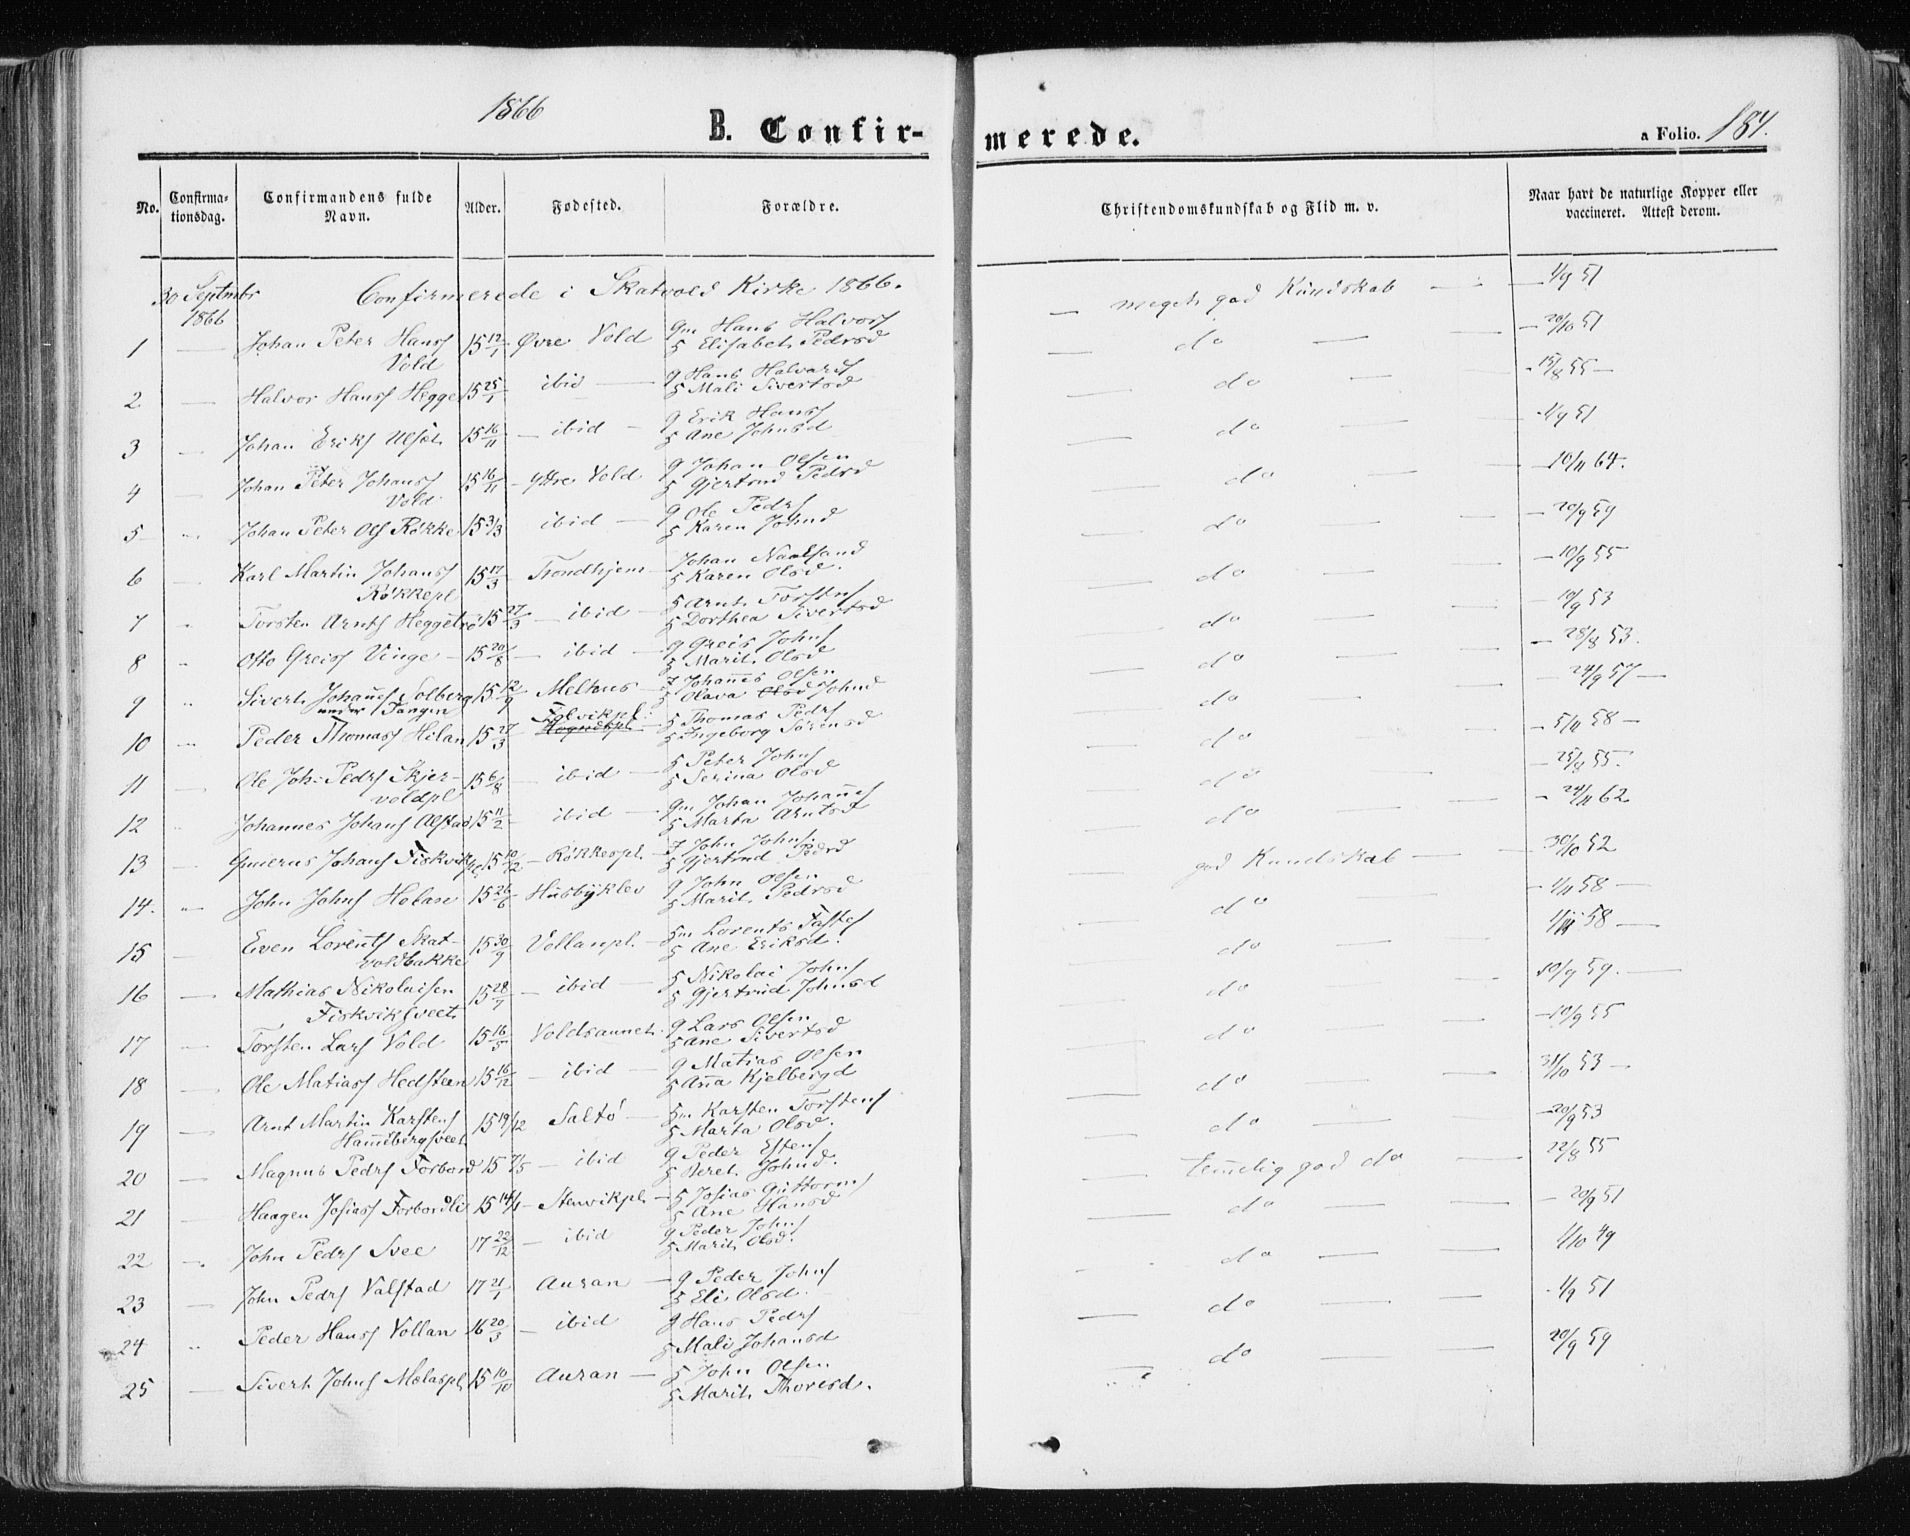 1866
B. Confir-
merede.
a Folio. 187.
No.
Confirma-
tionsdag.
Confirmandens fulde
Navn.
Alder.
Fødested.
Forældre.
Christendomskundskab og Flid m. v.
Naar havt de naturlige Kopper eller
vaccineret. Attest derom.
30 Septmbr
1866
Confirmerede i Skatvold Kirke 1866.
1 — Johan Peter Hansf Vold 15 12/1 Øvre Vold Gm Hans Halvorsf
5 Elisabet Pedrsd — meget god Kundskab — — 1/9 51
2 — Halvor Hansf Hegge 15 25/1 ibid — g Hans Halvorsf
5 Mali Sivertsd — do — — 20/10 51
3 — Johan Eriksf 15 16/11 — ibid — g Erik Hansf
5 Ane Johnsd — do — — 15/8 55 —
4 — Johan Peter Johansf Vold 15 16/11 — Ytre Vold g Johan Olsen
5 Gjertrud Pedrsd — do — — 1/9 51
5 — Johan Peter Olsf Røkke 15 3/3 ibid — g Ole Pedrsf
5 Karen Johnsd — do — — 10/11 64.
6 — Karl Martin Johansf Røkkepl 15 17/3 — Trondhjem — Johan
5 Karen Olsd. — do — — 20/9 59
7 — Torsten Arntsf 15 27/3 — ibid — 5 Arnt Torstnsf
5 Dorthea Sivertsd — do — — 10/9 55
8 „ Otto Greisf Vinge — 15 20/8 — ibid — g Greis Johnsf
5 Marit Olsd — do — — 19/9 53
9 „ Sivert Johañesf Solberg
under Tangen 15 12/9 Melhus — 7 Johañes Olsen
5 Olava Olsd Johnsd — do — — 25/8 53.
10 „ Peder Thomasf Hilan 15 27/3 — 5 Thomas Pedrsf
5 Ingeborg Sørensd — do — — 24/9 57 —
11 — Ole Joh: Pedrsf Skjer-
voldpl 15 6/8 — ibid — 5 Peter Johnsf
5 Serina Olsd — do — — 5/11 58 —
12 „ Johannes Johansf Alstad 15 11/2 — ibid — gm Johan Johañesf
5 Marta Arntsd — do — — 25/8 55.
13 — Johansf Fiskvikpl 15 10/12 — Røkkespl. — 7 John Johnsf.
5 Gjertrud Pedrsd — do — — 24/11 62
14. „ John Johnsf Holan 15 26/6 Husbykley g John Olsen
5 Marit Pedrsd — god Kundskab — — 30/10 52
15 — Even Lorentsf Skat-
voldbakke 15 30/9 Vollanpl. — 5m Lorents
5 Ane Eriksd. — do — — 1/11 58 —
16 — Mathias Nikolaisen
Fiskviksveet 15 28/7 — ibid — 5 Nikolai Johnsf
5 Gjertrud Johnsd — do — — 58 —
17 — Torsten Larsf Vold 15 16/5 Voldsaunet. g Lars Olsen
5 Ane Sivertsd — do — — 10/9 59. —
18 — Ole Matiasf Hedsteen 15 16/12 — ibid — g Matias Olsen
5 Aña Kjelbergd — do — — 10/9 55
19 — Arnt Martin Karstensf
Hamñbergsveet 15 19/12 Saltø — 5m Karsten Torstensf
5 Marta Olsd. — do — — 31/10 53 —
20 — Magnus Pedrsf Forbord 15 7/5 — ibid g Peder Estensf
5 Beret Johnsd. — do — — 20/9 53
21 — Haagen Josiasf Forbordli 15 14/1 — Stenvikpl. — 5 Josias Guttormsf
5 Ane Hansd — temmelig god do — — 22/8 55
22 — John Pedrsf Svee 17 22/12 — ibid g Peder Johnsf
5 Marit Olsd. — do — — 20/9 51
23 — John Pedrsf Valstad 17 21/1 Auran — g Peder Johnsf
5 Eli Olsd. — do — — 1/10 49
24 „ Peder Hansf Vollan 16 20/3 — ibid g Hans Pedrsf
5 Mali Johansd — do — — 1/9 51
25 — Sivert Johnsf Mælaspl 15 10/10 Auran — 5 John Olsen
5 Marit Thoresd. — do — — 20/9 59